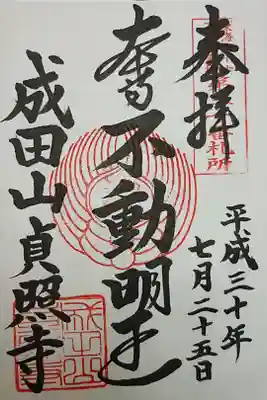 奉拝
番札所
平成三十年
七月二十五日
本尊不動明王
成田山貞照寺